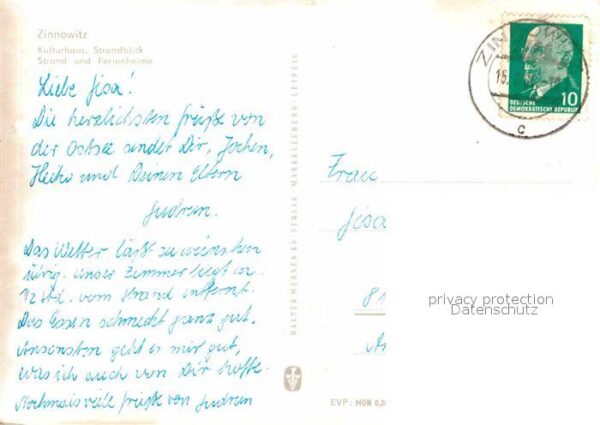 Zinnowitz
Kulturhaus, Strandblick
Strand und Ferienheime
Liebe Gisa!
Die herzlichsten Grüße von
der Ostsee sendet Dir, Jochen,
Heiko und Deinen Eltern
Gudrun.
Das Wetter läßt zu wünschen
übrig. Unser Zimmer liegt ca.
1/2 Std. vom Strand entfernt.
Das Essen schmeckt ganz gut.
Ansonsten geht es mir gut,
was ich auch von Dir hoffe.
Nochmals viele Grüße von Gudrun
WALTER WERNER KG VERLAG · MARKKLEEBERG - LEIPZIG
EVP: MDN 0,20
DEUTSCHE
DEMOKRATISCHE REPUBLIK
10
ZINNOWITZ
15.
c
Frau
Gisa
81
privacy protection
Datenschutz